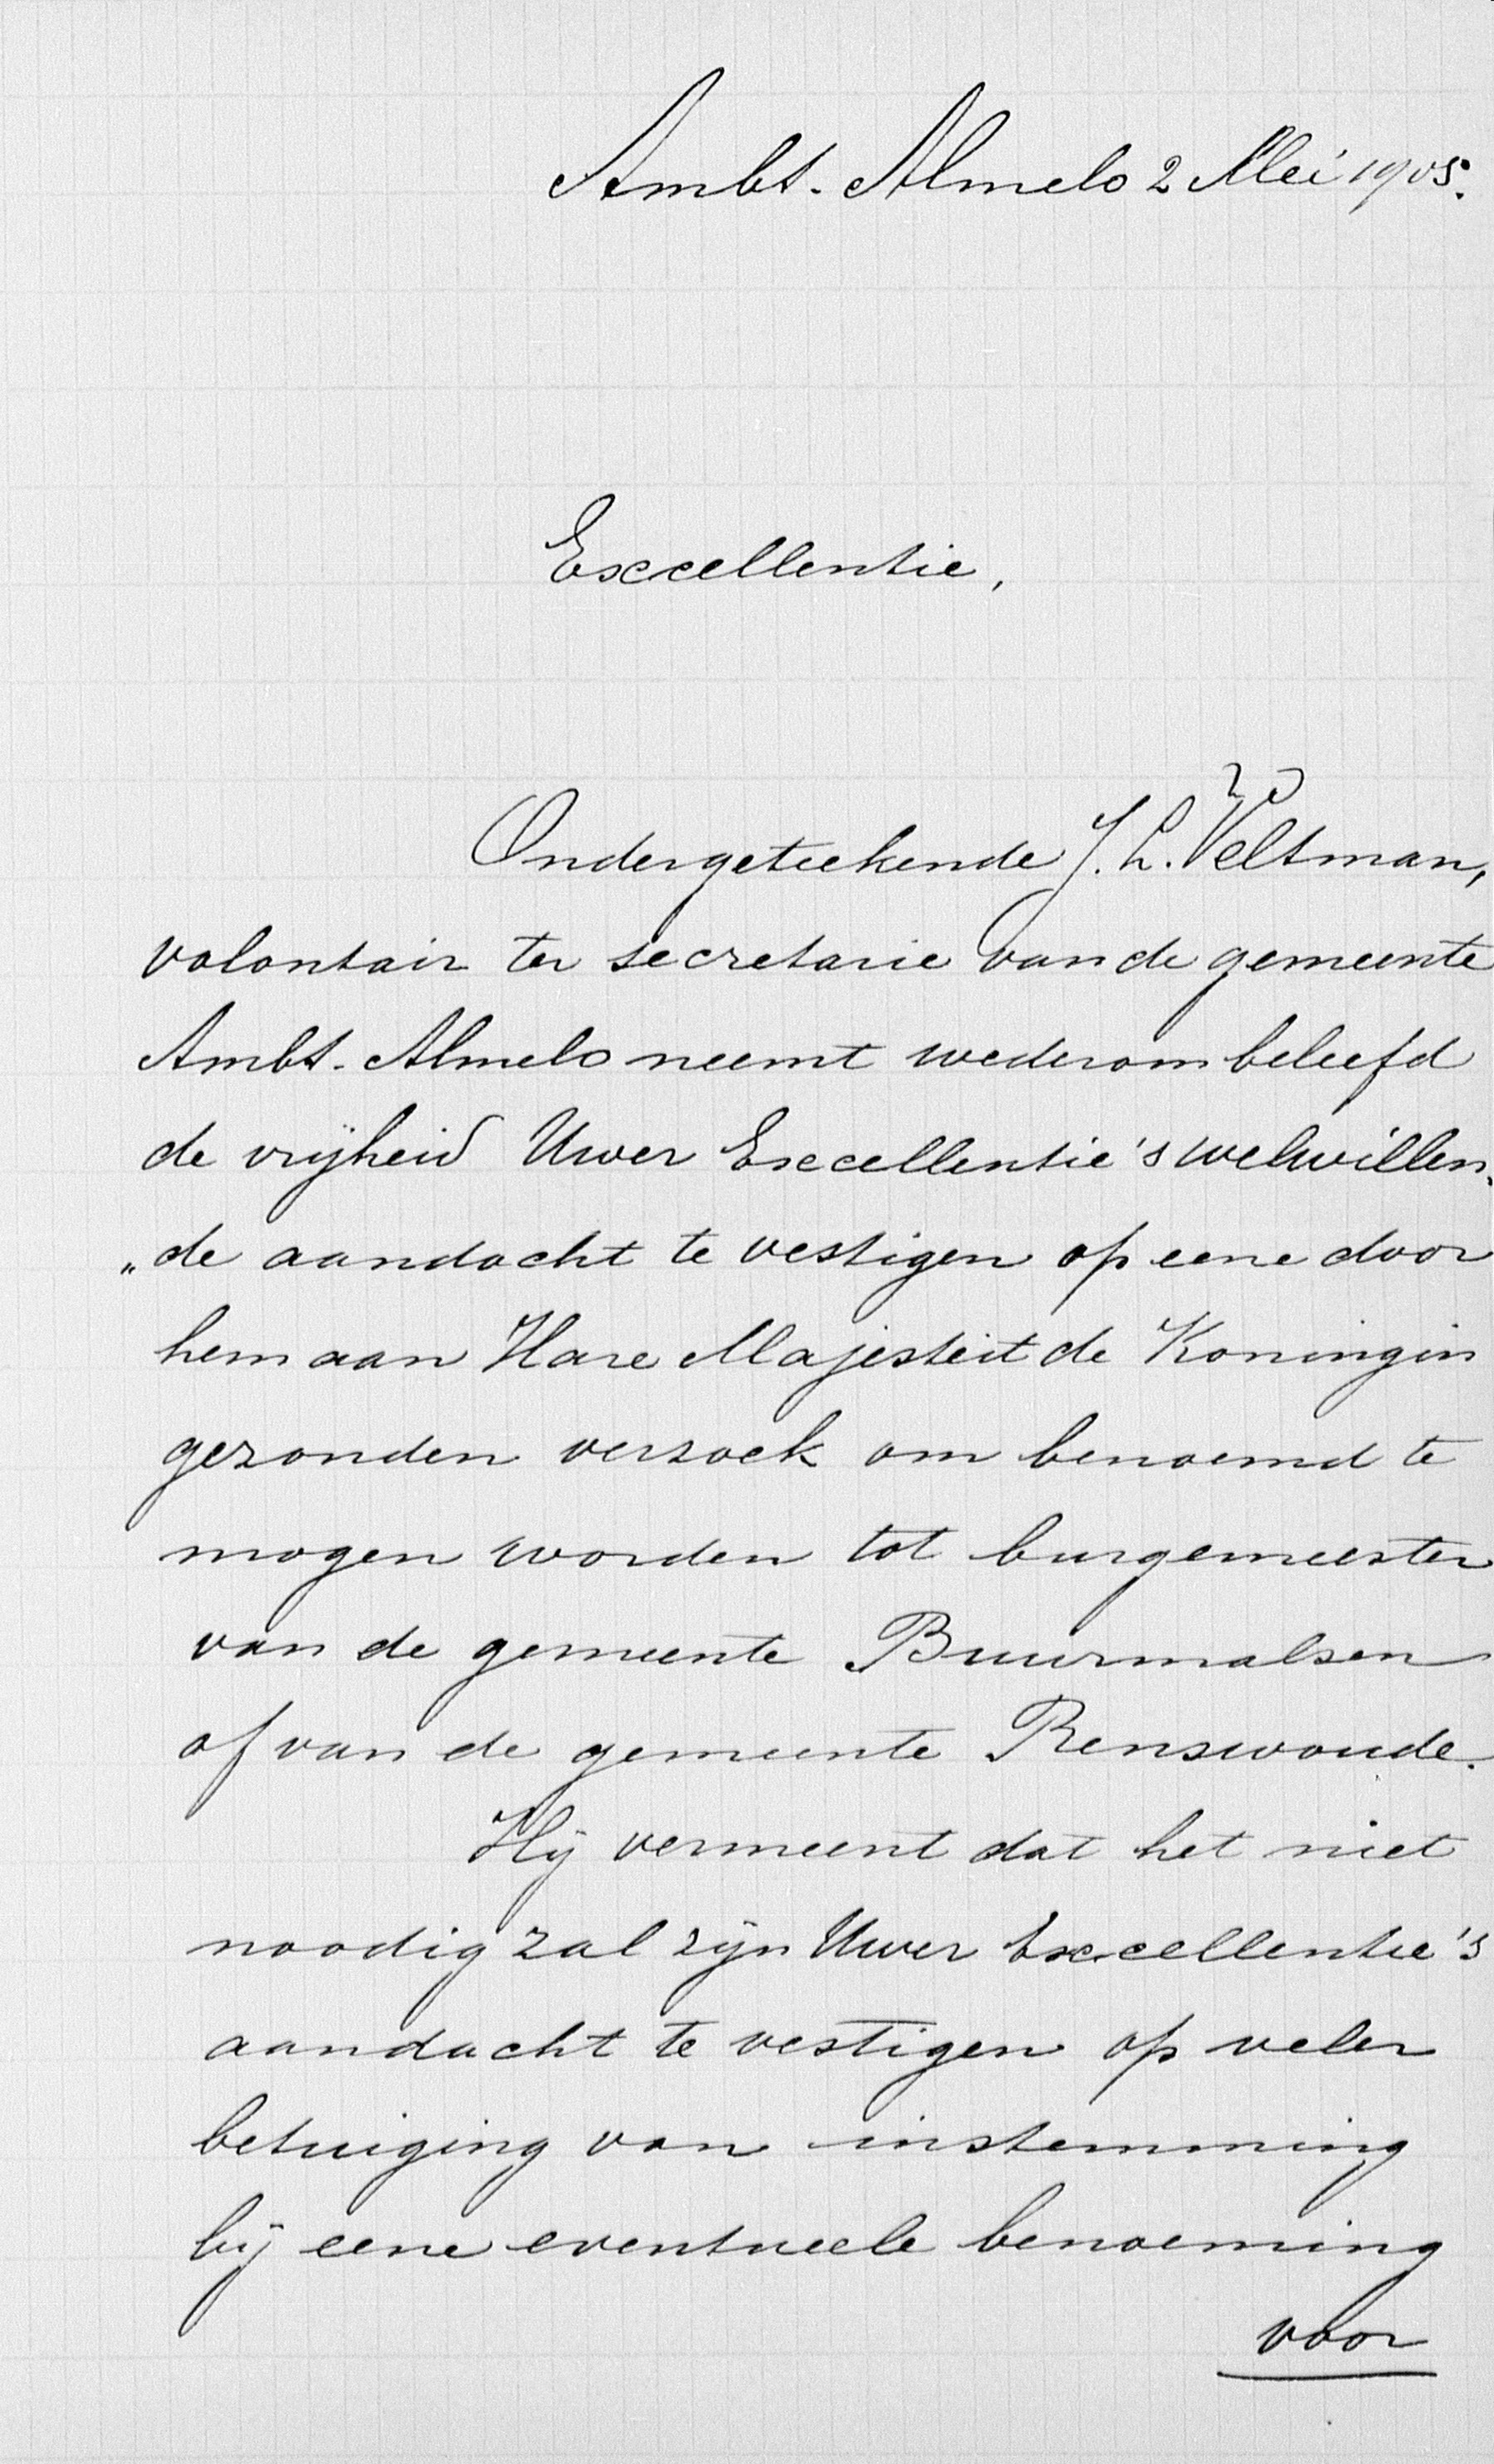 Ambt-Almelo 2 Mei 1905.
Excellentie,
Ondergeteekende J. L. Veltman,
volontair ter secretarie van de gemeente
Ambt-Almelo neemt wederom beleefd
de vrijheid Uwer Excellentie's welwillen„
„de aandacht te vestigen op eene door
hem aan Hare Majesteit de Koningin
gezonden verzoek om benoemd te
mogen worden tot burgemeester
van de gemeente Buurmalsen
of van de gemeente Renswoude.
Hij vermeent dat het niet
noodig zal zijn Uwer Excellentie's
aandacht te vestigen op veler
betuiging van instemming
bij eene eventueele benoeming
voor